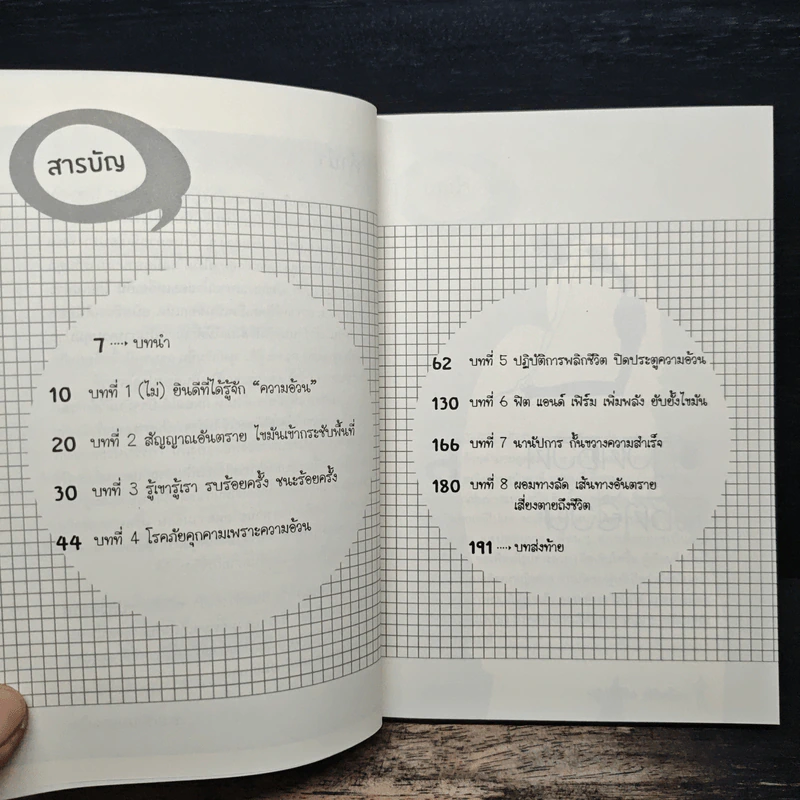 สารบัญ
7 ····> บทนำ
10 บทที่ 1 (ไม่) ยินดีที่ได้รู้จัก “ความอ้วน”
20 บทที่ 2 สัญญาณอันตราย ไขมันเข้ากระชับพื้นที่
30 บทที่ 3 รู้เขารู้เรา รบร้อยครั้ง ชนะร้อยครั้ง
44 บทที่ 4 โรคภัยคุกคามเพราะความอ้วน
62 บทที่ 5 ปฏิบัติการพลิกชีวิต ปิดประตูความอ้วน
130 บทที่ 6 ฟิต แอนด์ เฟิร์ม เพิ่มพลัง ยับยั้งไขมัน
166 บทที่ 7 นานัปการ กั้นขวางความสำเร็จ
180 บทที่ 8 ผอมทางลัด เส้นทางอันตราย
เสี่ยงตายถึงชีวิต
191 ····> บทส่งท้าย